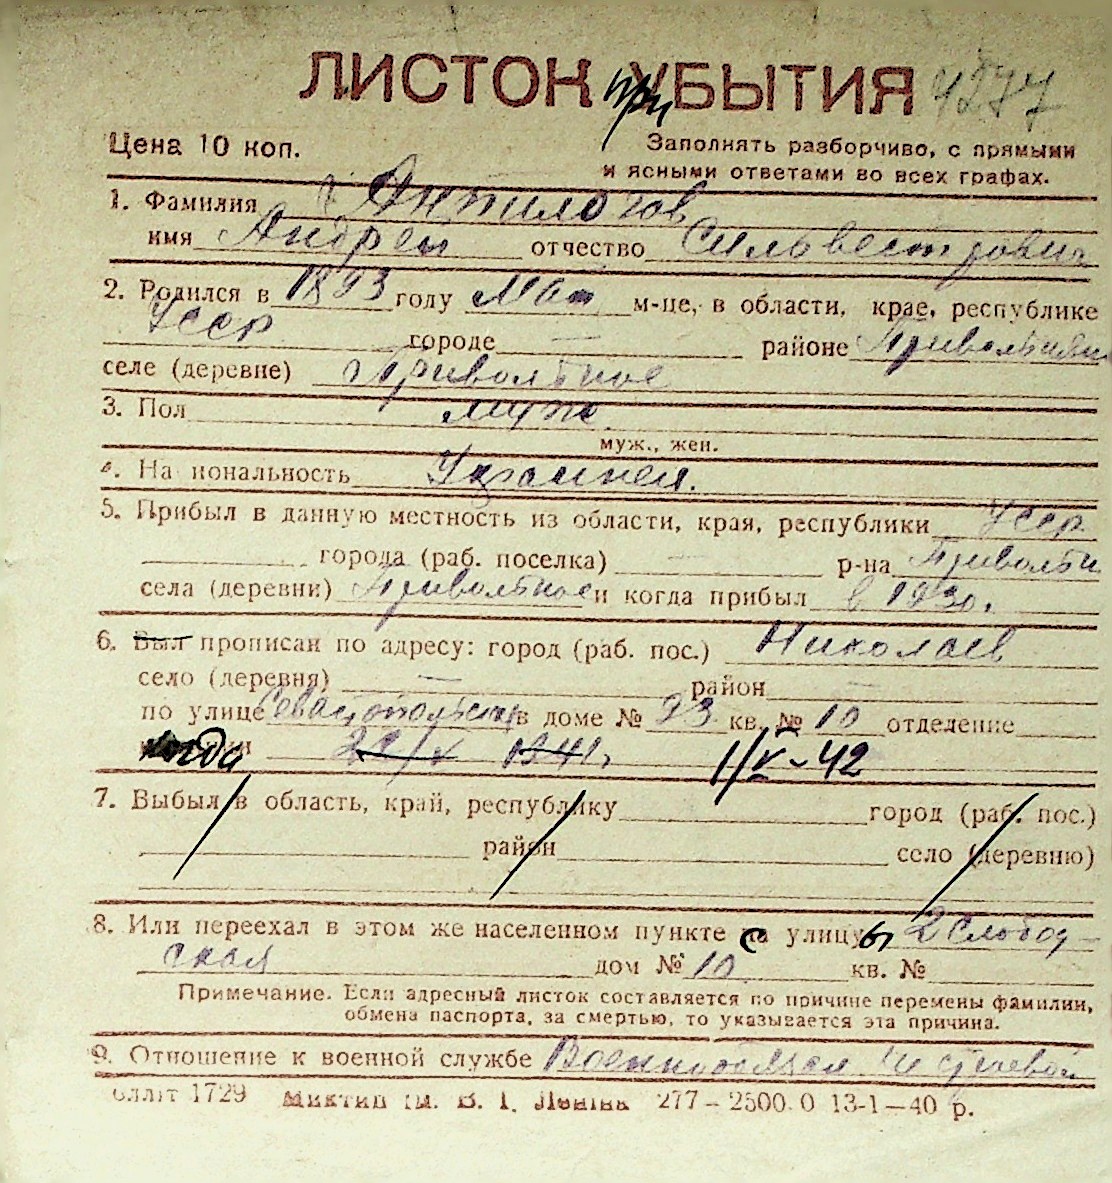 ЛИСТОК УБЫТИЯ при 4277
Цена 10 коп.
Заполнять разборчиво, с прямыми
и ясными ответами во всех графах.
1. Фамилия Анпилогов
имя Андрей отчество Сильвестрович
2. Родился в 1893 году Май м-це, в области, крае, республике
Усср городе — районе Привольнян
селе (деревне) Привольное
3. Пол муж.
муж., жен.
4. На иональность Украинец.
5. Прибыл в данную местность из области, края, республики Усср
города (раб. поселка) — р-на Привольн
села (деревни) Привольное и когда прибыл в 1930.
6. Был прописан по адресу: город (раб. пос.) Николаев
село (деревня) — район —
по улице Севастопольск в доме № 93 кв. № 10 отделение
когда 1941. 1/V-42
7. Выбыл в область, край, республику город (раб. пос.)
район село (деревню)
8. Или переехал в этом же населенном пункте с улицы 2 Слобод-
ская дом № 10 кв. №
Примечание. Если адресный листок составляется по причине перемены фамилии,
обмена паспорта, за смертью, то указывается эта причина.
9. Отношение к военной службе
1729 277–2500.0 13-1–40 р.